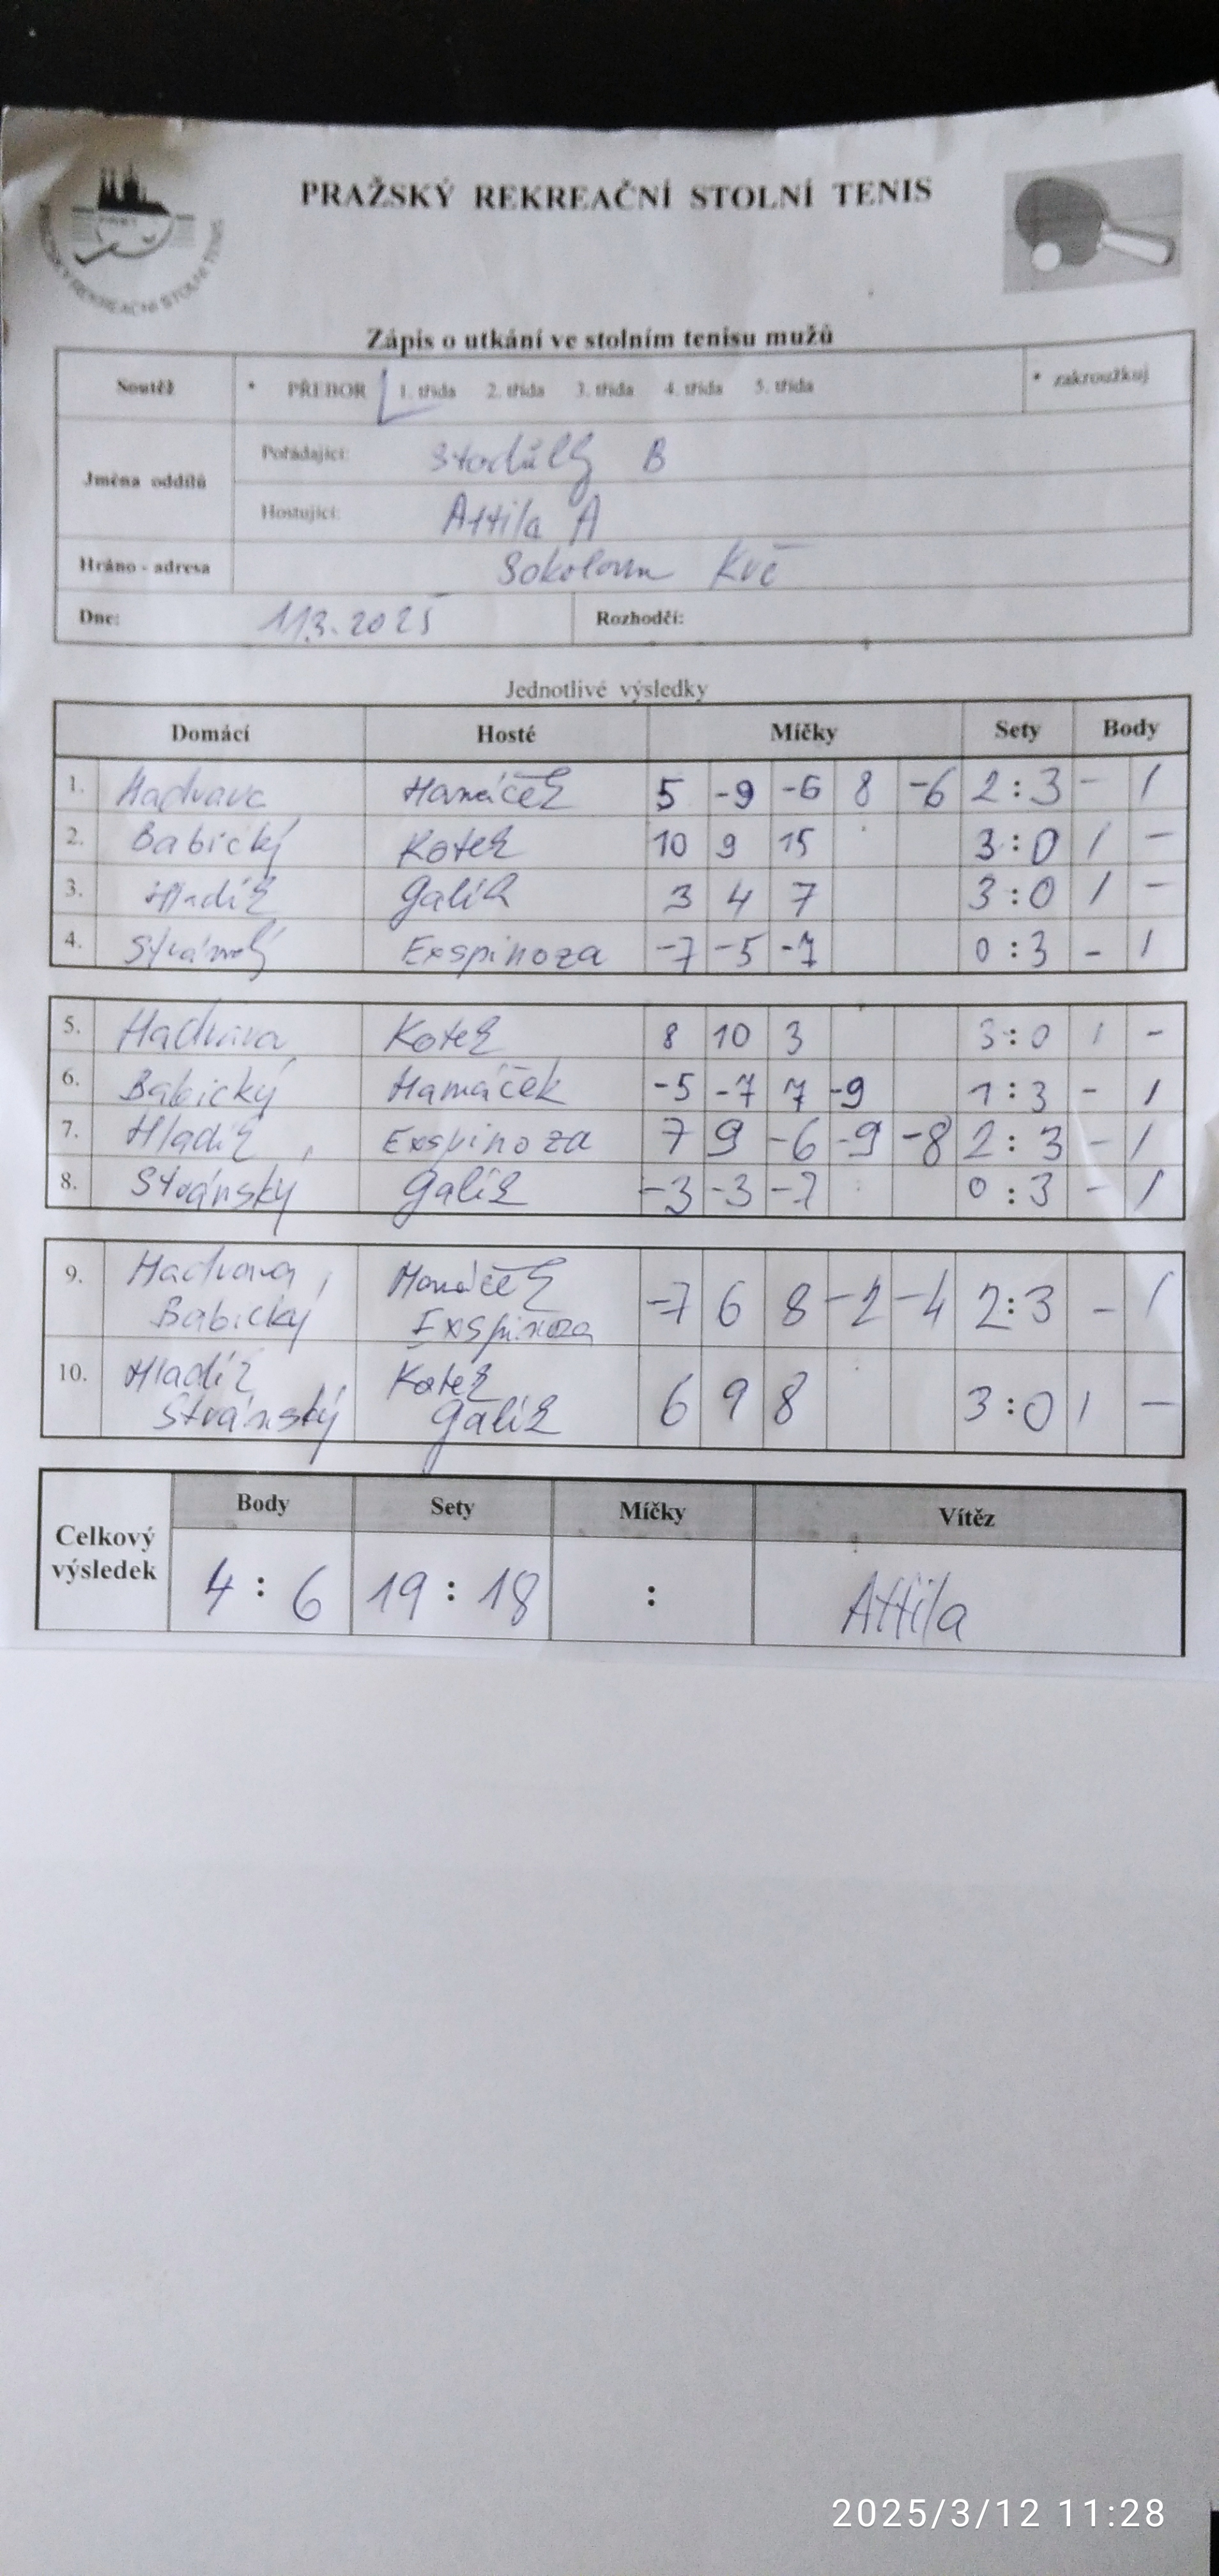 PRAŽSKÝ REKREAČNÍ STOLNÍ TENIS
PRAŽSKÝ REKREAČNÍ STOLNÍ TENIS
Zápis o utkání ve stolním tenisu mužů
Soutěž * PŘEBOR 1. třída 2. třída 3. třída 4. třída 5. třída * zakroužkuj
Jména oddílů
Pořádající: Stodůlky B
Hostující: Attila A
Hráno - adresa Sokolovna Kvě
Dne: 11.3.2025 Rozhodčí:
Jednotlivé výsledky
Domácí Hosté Míčky Sety Body
1. Hadrava Hanáček 5 -9 -6 8 -6 2:3 - 1
2. Babický Kotek 10 9 15 3:0 1 -
3. Hladík Galík 3 4 7 3:0 1 -
4. Stránský Exspinoza -7 -5 -7 0:3 - 1
5. Hadrava Kotek 8 10 3 3:0 1 -
6. Babický Hamáček -5 -7 7 -9 1:3 - 1
7. Hladík, Exspinoza 7 9 -6 -9 -8 2:3 - 1
8. Stránský Galík -3 -3 -7 0:3 - 1
9. Hadrava, Hanáček -7 6 8 -2 -4 2:3 - 1
Babický Exspinoza
10. Hladík Kotek 6 9 8 3:0 1 -
Stránský Galík
Celkový výsledek
Body Sety Míčky Vítěz
4:6 19:18 : Attila
2025/3/12 11:28